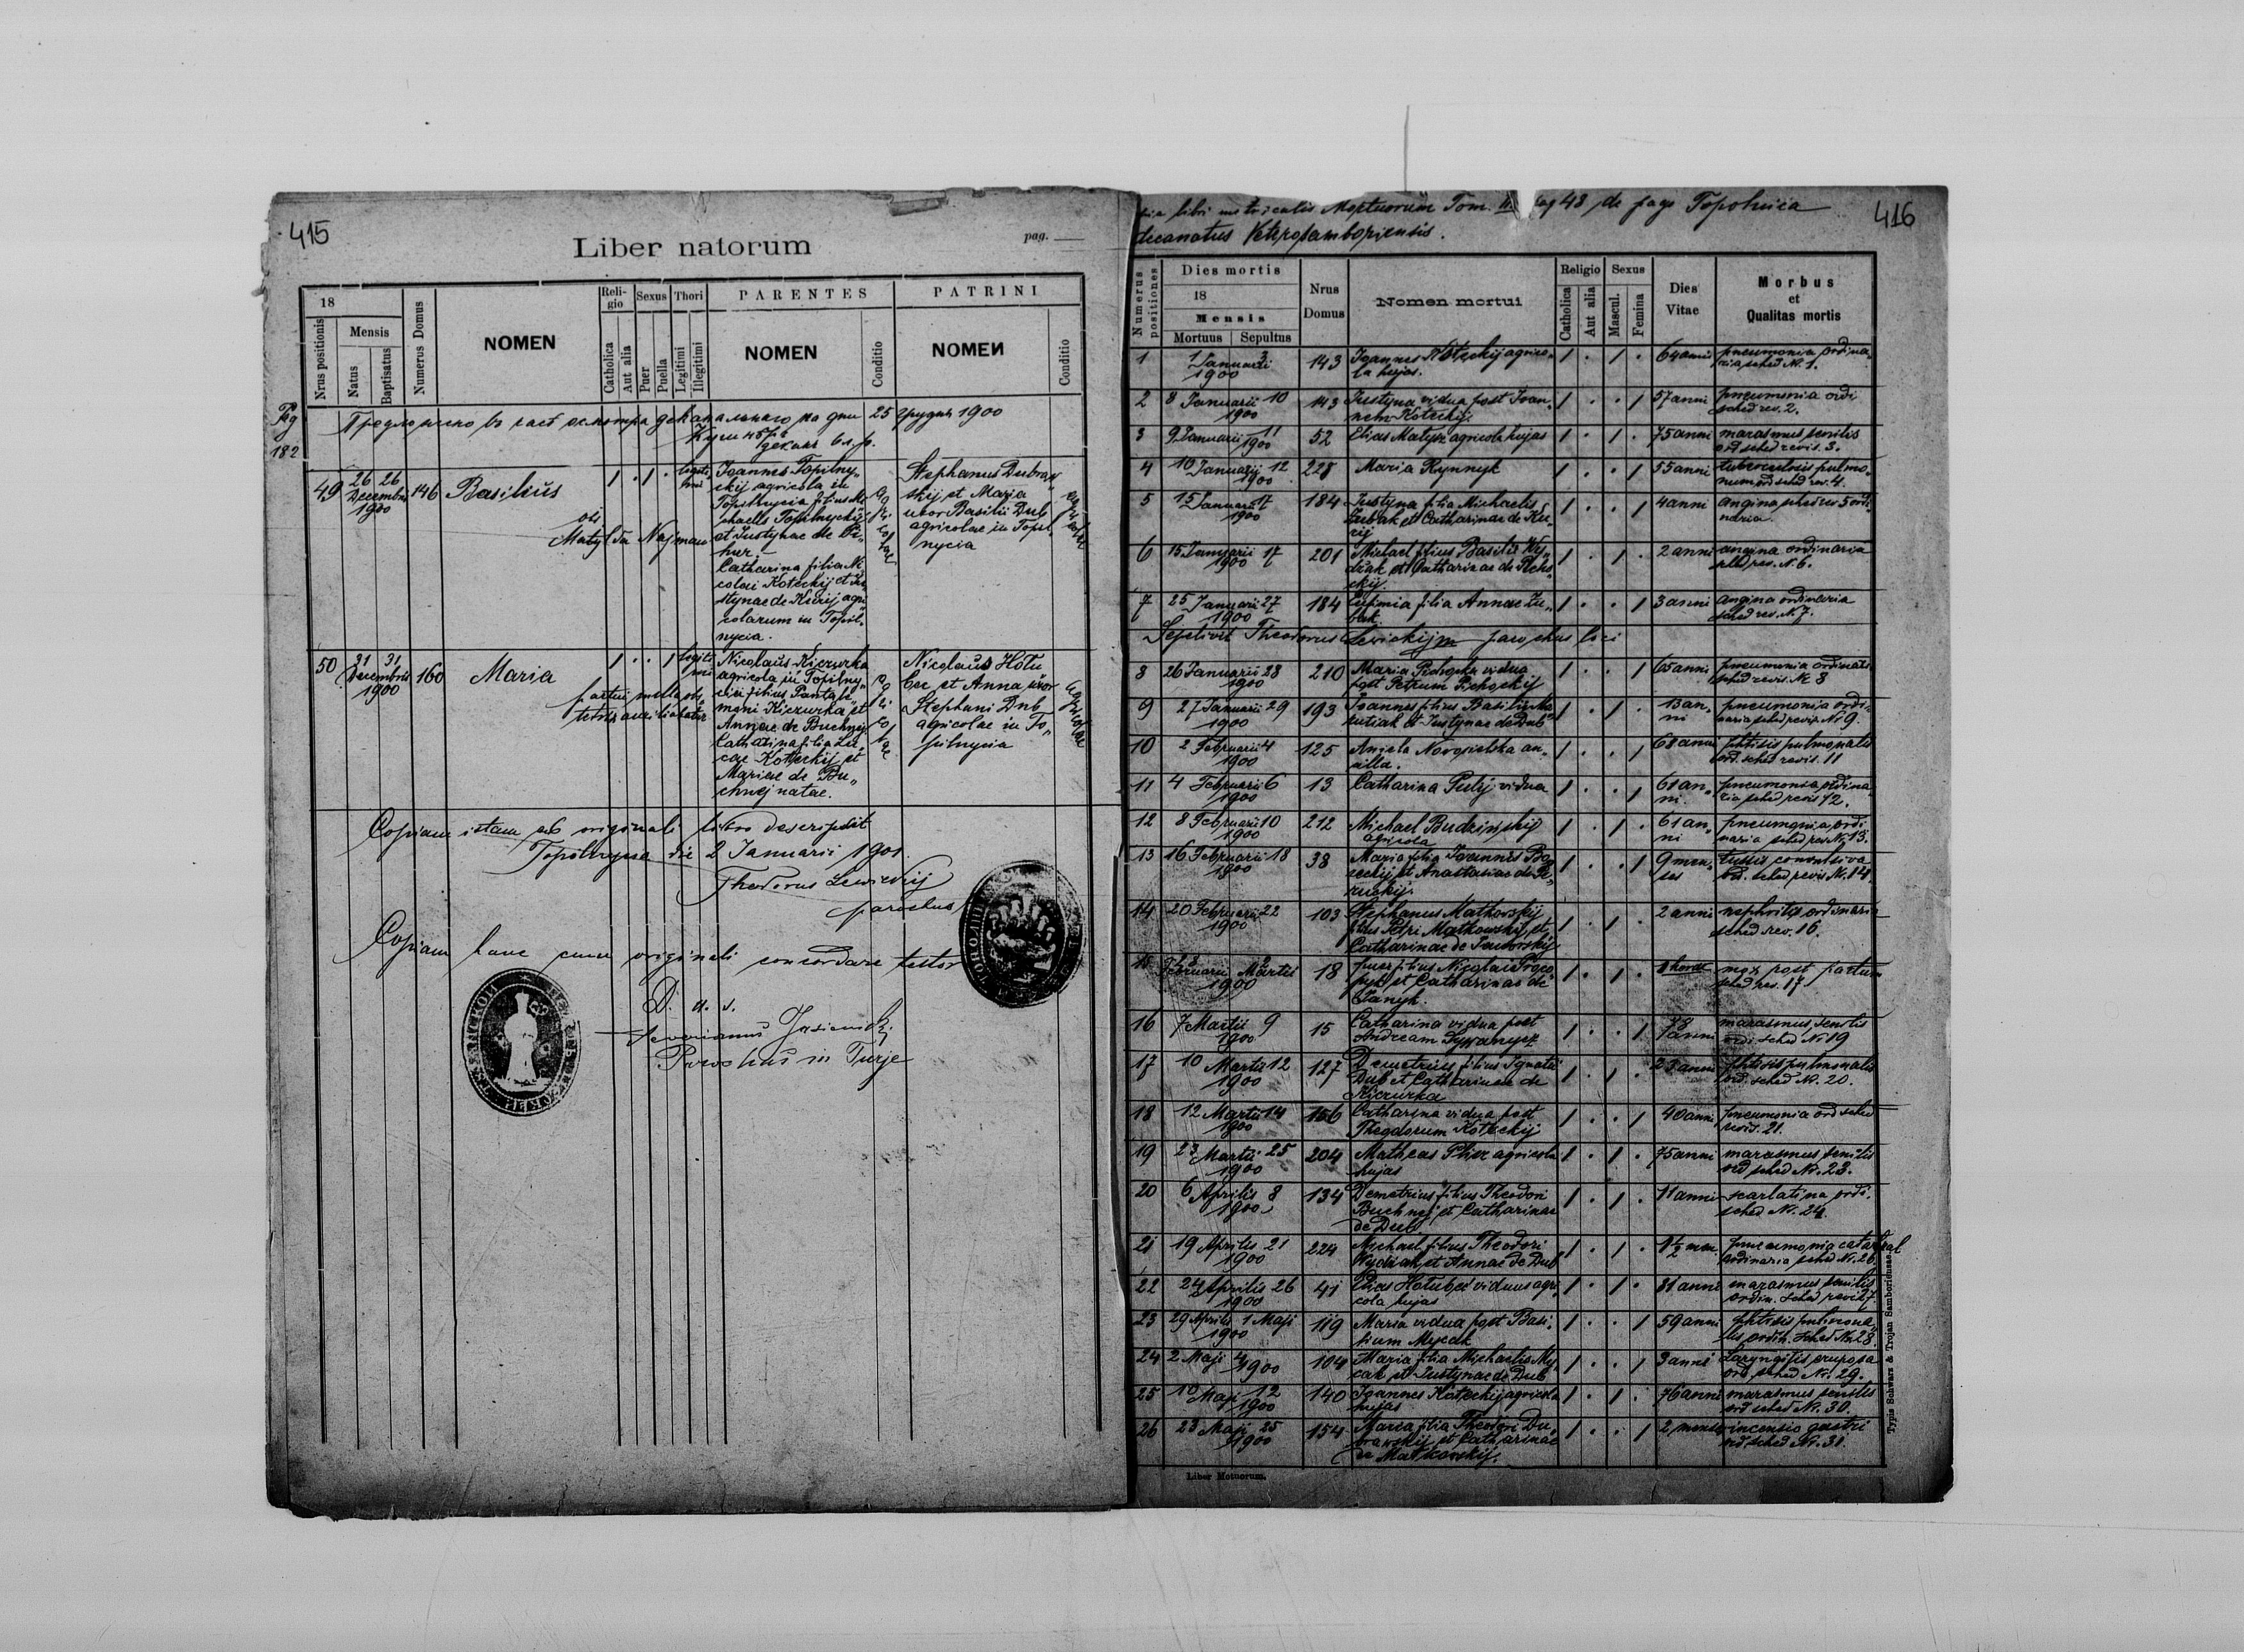 415
Liber natorum
pag.
18
Nrus positionis
Mensis
Natus
Baptisatus
Numerus Domus
NOMEN
Reli-
gio
Catholica
Aut alia
Sexus
Puer
Puella
Thori
Legitimi
Illegitimi
PARENTES
NOMEN
Conditio
PATRINI
NOMEN
Conditio
Pag
182
25 грудня 1900
49
26 26
Decembris
1900
146
Basilius
legiti
mi
obs
Matylda Najman
Joannes Topilny„
ckij agricola in
Topilnycia filius Mi
chaelis Topilnyckij
et Justynae de
Catharina filia Ni
colai Koteckij et Ju
stynae de Kurij agri
colarum in Topil„
nycia.
Agricolae
Stephanus Dubraw
skij et Maria
uxor Basilii Dub
agricolae in Topil„
nycia
Agricolae
50
31 31
Decembris
1900
160
Maria
legiti
mi
partui nulla obs
tetrix auxiliabatur
Nicolaus Kiczurka
agricola in Topilny„
cia filius Pantale„
moni Kiczurka et
Annae de Buchnij
Catharina filia Lu„
cae Koteckij et
Mariae de Bu„
chnij natae.
Agricolae
Nicolaus Hołu
bec et Anna uxor
Stephani Dub
agricolae in To„
pilnycia
Agricolae
Copiam istam ab originali libro descripsit
Topilnycia die 2 Januarii 1901
Theodorus Lewickij
parochus
Copiam hanc cum originali concordare testor
D. u. s.
Severianus Jasienicki
Parochus in Turje
416
libri metricalis Mortuorum Tom. II. pag 48, de pago Topolnica
decanatus Veterosamboriensis.
Numerus
positiones
Dies mortis
18
Mensis
Mortuus
Sepultus
Nrus
Domus
Nomen mortui
Religio
Catholica
Aut alia
Sexus
Mascul.
Femina
Dies
Vitae
Morbus
et
Qualitas mortis
1 1 Januarii 3 1900 143 Joannes Koteckij agrico„
la hujas. 64 anni pneumonia ordina„
ria sched N. 1.
2 8 Januarii 10 1900 143 Justyna vidua post Joan„
nem Koteckij. 57 anni pneumonia ordi
sched rev. 2.
3 9 Januarii 11 1900 52 Elias Matysz agricola hujas 75 anni marasmus senilis
ord sched revis. 3.
4 10 Januarii 12 1900 228 Maria Rynnyk 55 anni tuberculosis pulmo„
num ord sched rev. 4.
5 15 Januarii 17 1900 184 Justyna filia Michaelis
Zubak et Catharinae de Ku„
rij 4 anni angina sched rev 5 ordi
naria.
6 15 Januarii 17 1900 201 Michael filius Basilii Wy„
dzak et Catharinae de
ckij. 2 anni angina ordinaria
sched rev. N. 6.
7 25 Januarii 27 1900 184 Eufimia filia Annae Zu„
bak. 3 anni angina ordinaria
sched rev. N. 7.
Sepelivit Theodorus Lewickij parochus loci
8 26 Januarii 28 1900 210 Maria vidua
post Petrum 65 anni pneumonia ordinaris
sched revis. N. 8
9 27 Januarii 29 1900 193 Joannes filius Basilii
et Justynae de Dub 13 an„
ni pneumonia ordi„
naria sched revis. N. 9.
10 2 Februarii 4 1900 125 Anjela Nowosielska an„
cilla. 68 anni phtisis pulmonalis
ord. sched revis. 11
11 4 Februarii 6 1900 13 Catharina Pulij vidua 61 an„
ni. pneumonia ordina„
ria sched revis 12.
12 8 Februarii 10 1900 212 Michael Budzinskij
agricola 61 an„
ni pneumonia ordi
naria sched rev. N. 13.
13 16 Februarii 18 1900 38 Maria filia Joannis Bo„
reckij et Anastasiae de
9 men„
ses tussis convulsiva
ord. sched revis. N. 14.
14 20 Februarii 22 1900 103 Stephanus Matkowskij
filius Petri Matkowskij et
Catharinae de 2 anni nephritis ordinaria
sched rev. 16.
15 Februarii Martii 1900 18 puer filius Nicolai
et Catharinae de
mox post partum
sched rev. 17
16 7 Martii 9 1900 15 Catharina vidua post
Andream 78
anni marasmus senilis
ordi sched N. 19
17 10 Martii 12 1900 127 Demetrius filius Ignatii
Dub et Catharinae de
Kiczurka 23 anni phtisis pulmonalis
ord. sched N. 20.
18 12 Martii 14 1900 156 Catharina vidua post
Theodorum Koteckij 40 anni pneumonia ord sched
revis. 21.
19 23 Martii 25 1900 204 Matheas agricola
hujas 75 anni marasmus senilis
ord sched N. 23.
20 6 Aprilis 8 1900 134 Demetrius filius Theodori
Buchnij et Catharinae
de Dub 11 anni scarlatina ordi.
sched N. 24.
21 19 Aprilis 21 1900 224 Michael filius Theodori
Wydzak et Annae de Dub 1½ men. pneumonia catarhal
ordinaria sched N. 26.
22 24 Aprilis 26 1900 41 Elias Hołubec viduus agri„
cola hujas 81 anni marasmus senilis
ordin. sched revis 27.
23 29 Aprilis 1 Maji 1900 119 Maria vidua post Basi„
lium 59 anni phtisis pulmona„
lis ordin. sched N. 28.
24 2 Maji 4 1900 104 Maria filia Michaelis My„
cak et Justynae de Dub 3 anni Laryngitis cruposa
ord sched N. 29.
25 10 Maji 12 1900 140 Joannes Koteckij agricola
hujas 76 anni marasmus senilis
ord sched N. 30.
26 23 Maji 25 1900 154 Maria filia Theodori Du„
browskij et Catharinae
de Matkowskij. 2 menses gastri
ord sched N. 31.
Liber Motuorum.
Typis Schwarz & Trojan Samboriensae.